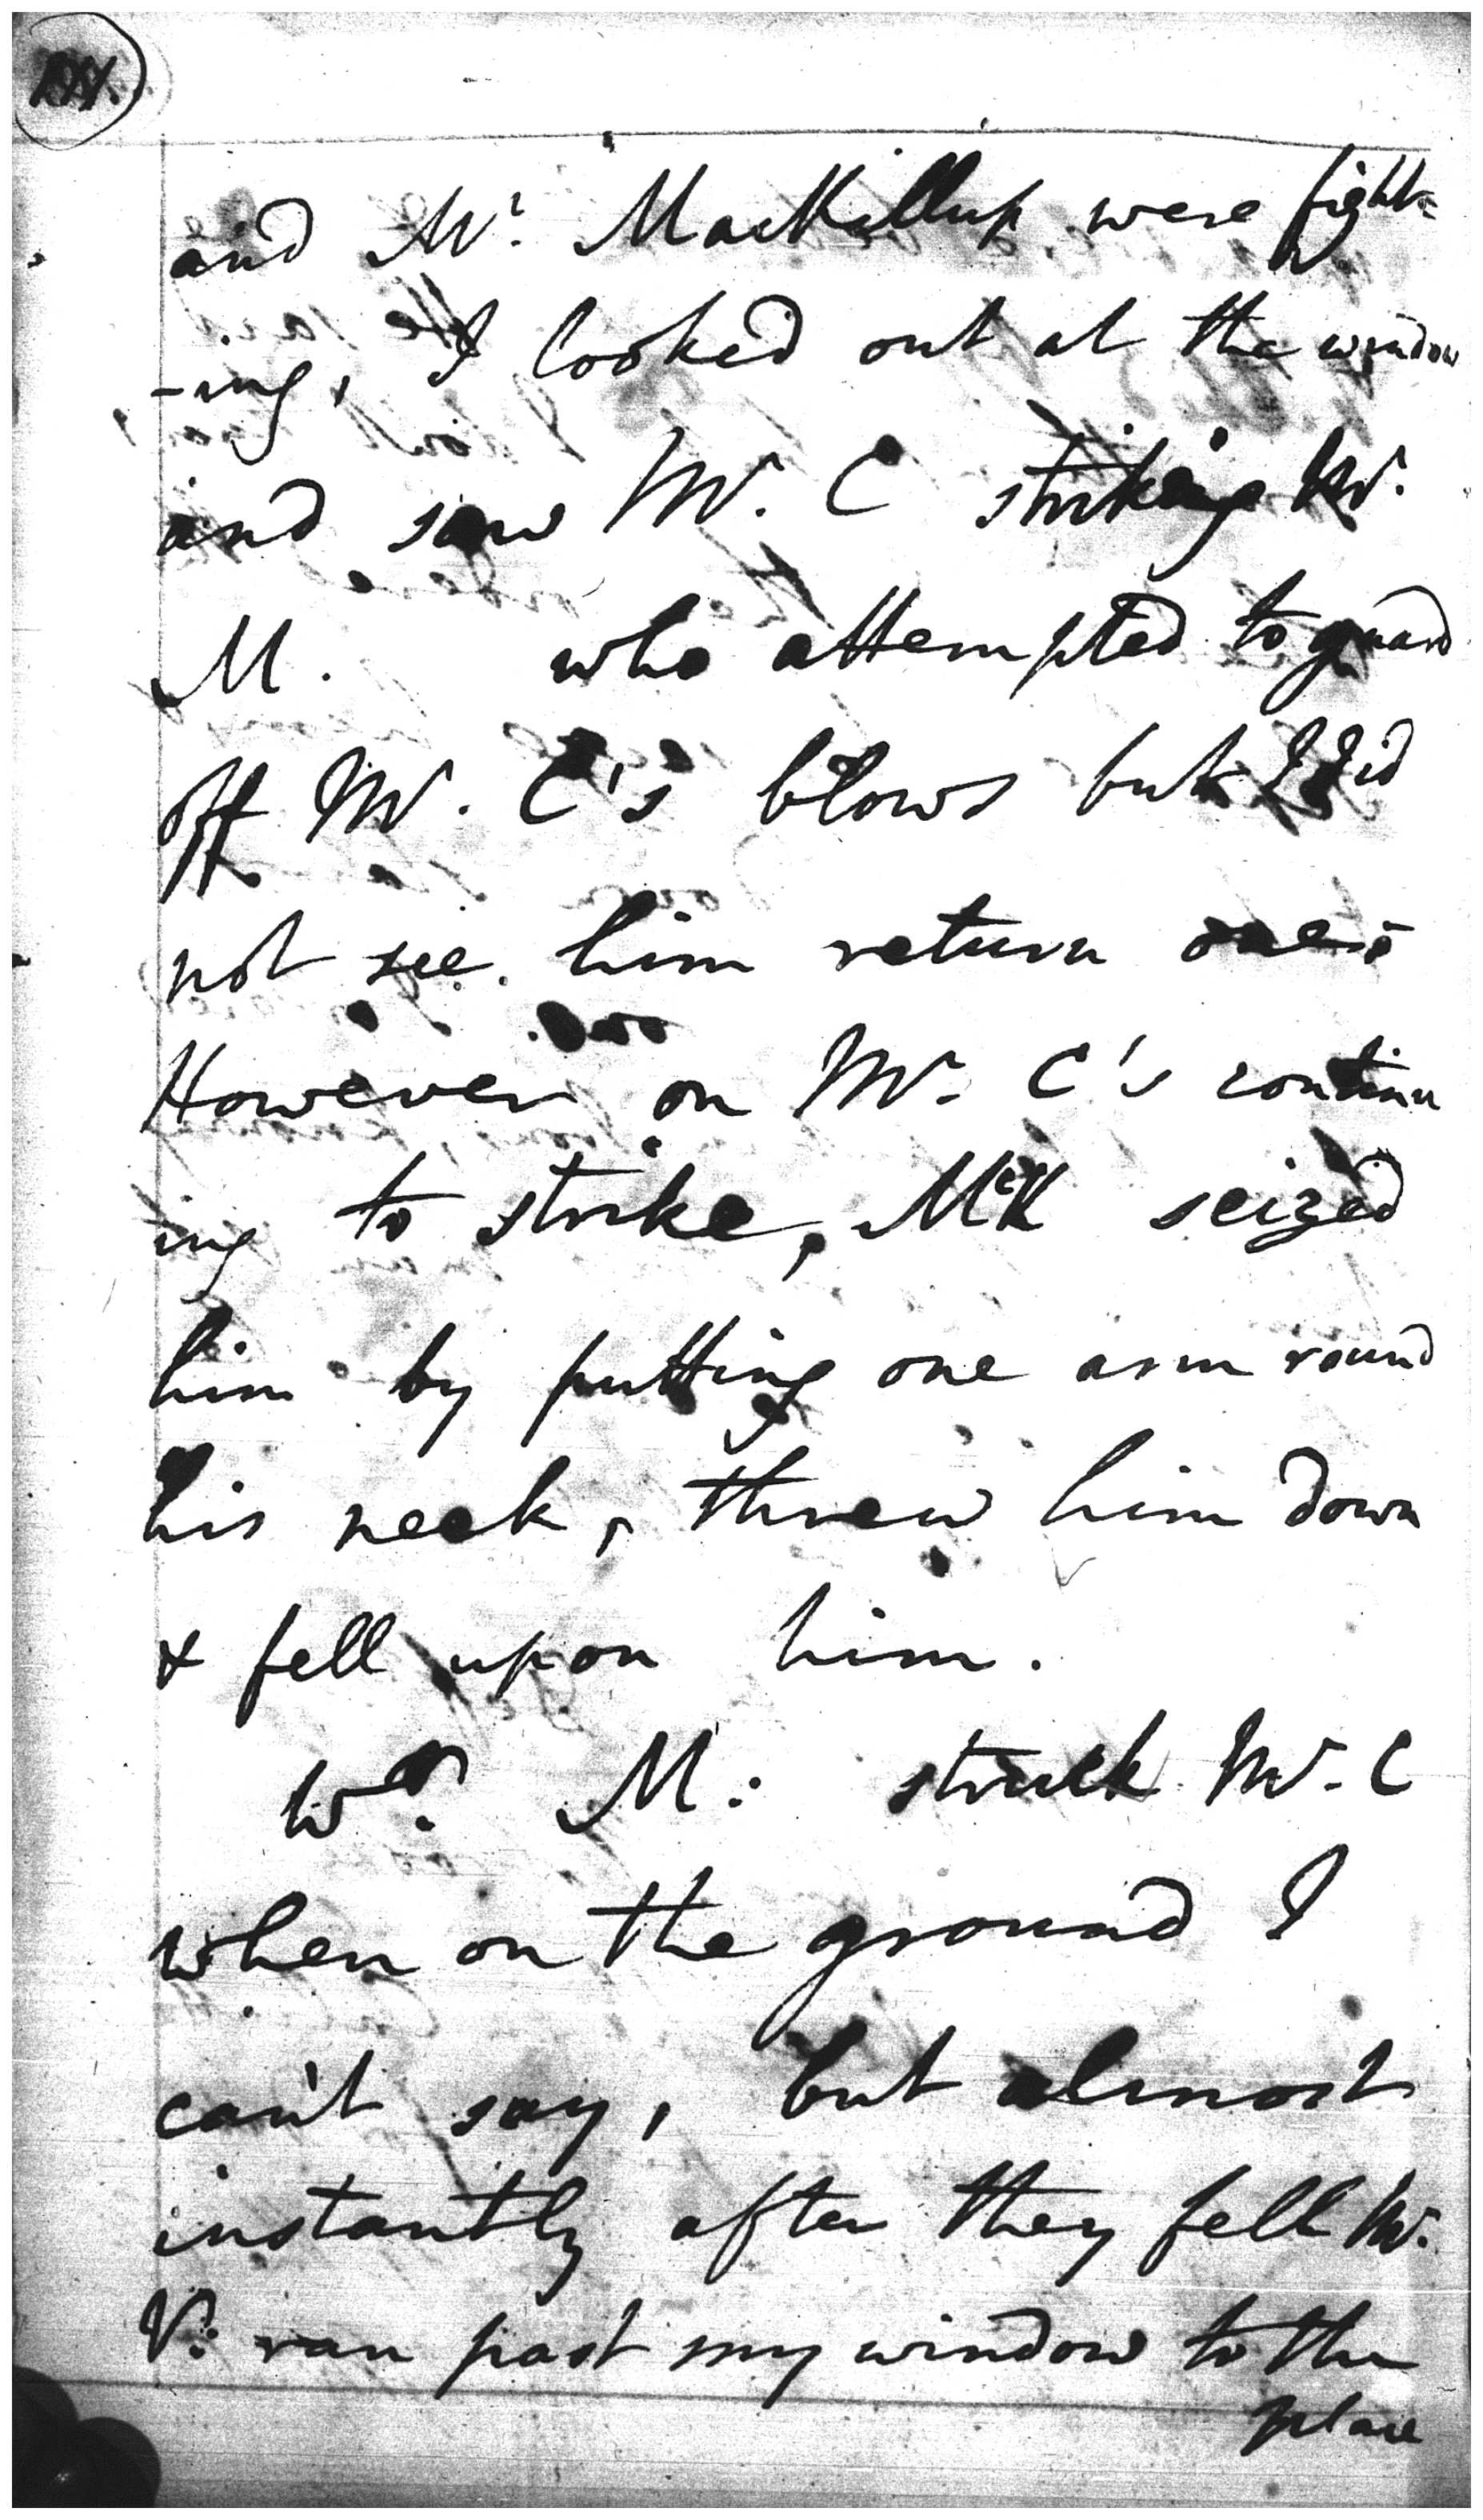 and Mr. MacKillup were fight=
-ing, I looked out at the window
and saw Mr. C striking Mr.
M. who attempted to guard
off Mr. C's blows but I did
not see him return one
However on Mr. C's continu
ing to strike, McK seized
him by putting one arm round
his neck, threw him down
& fell upon him.
Wr. M: struck Mr. C
when on the ground I
can't say, but almost
instantly after they fell Mr.
V: ran past my window to the
place